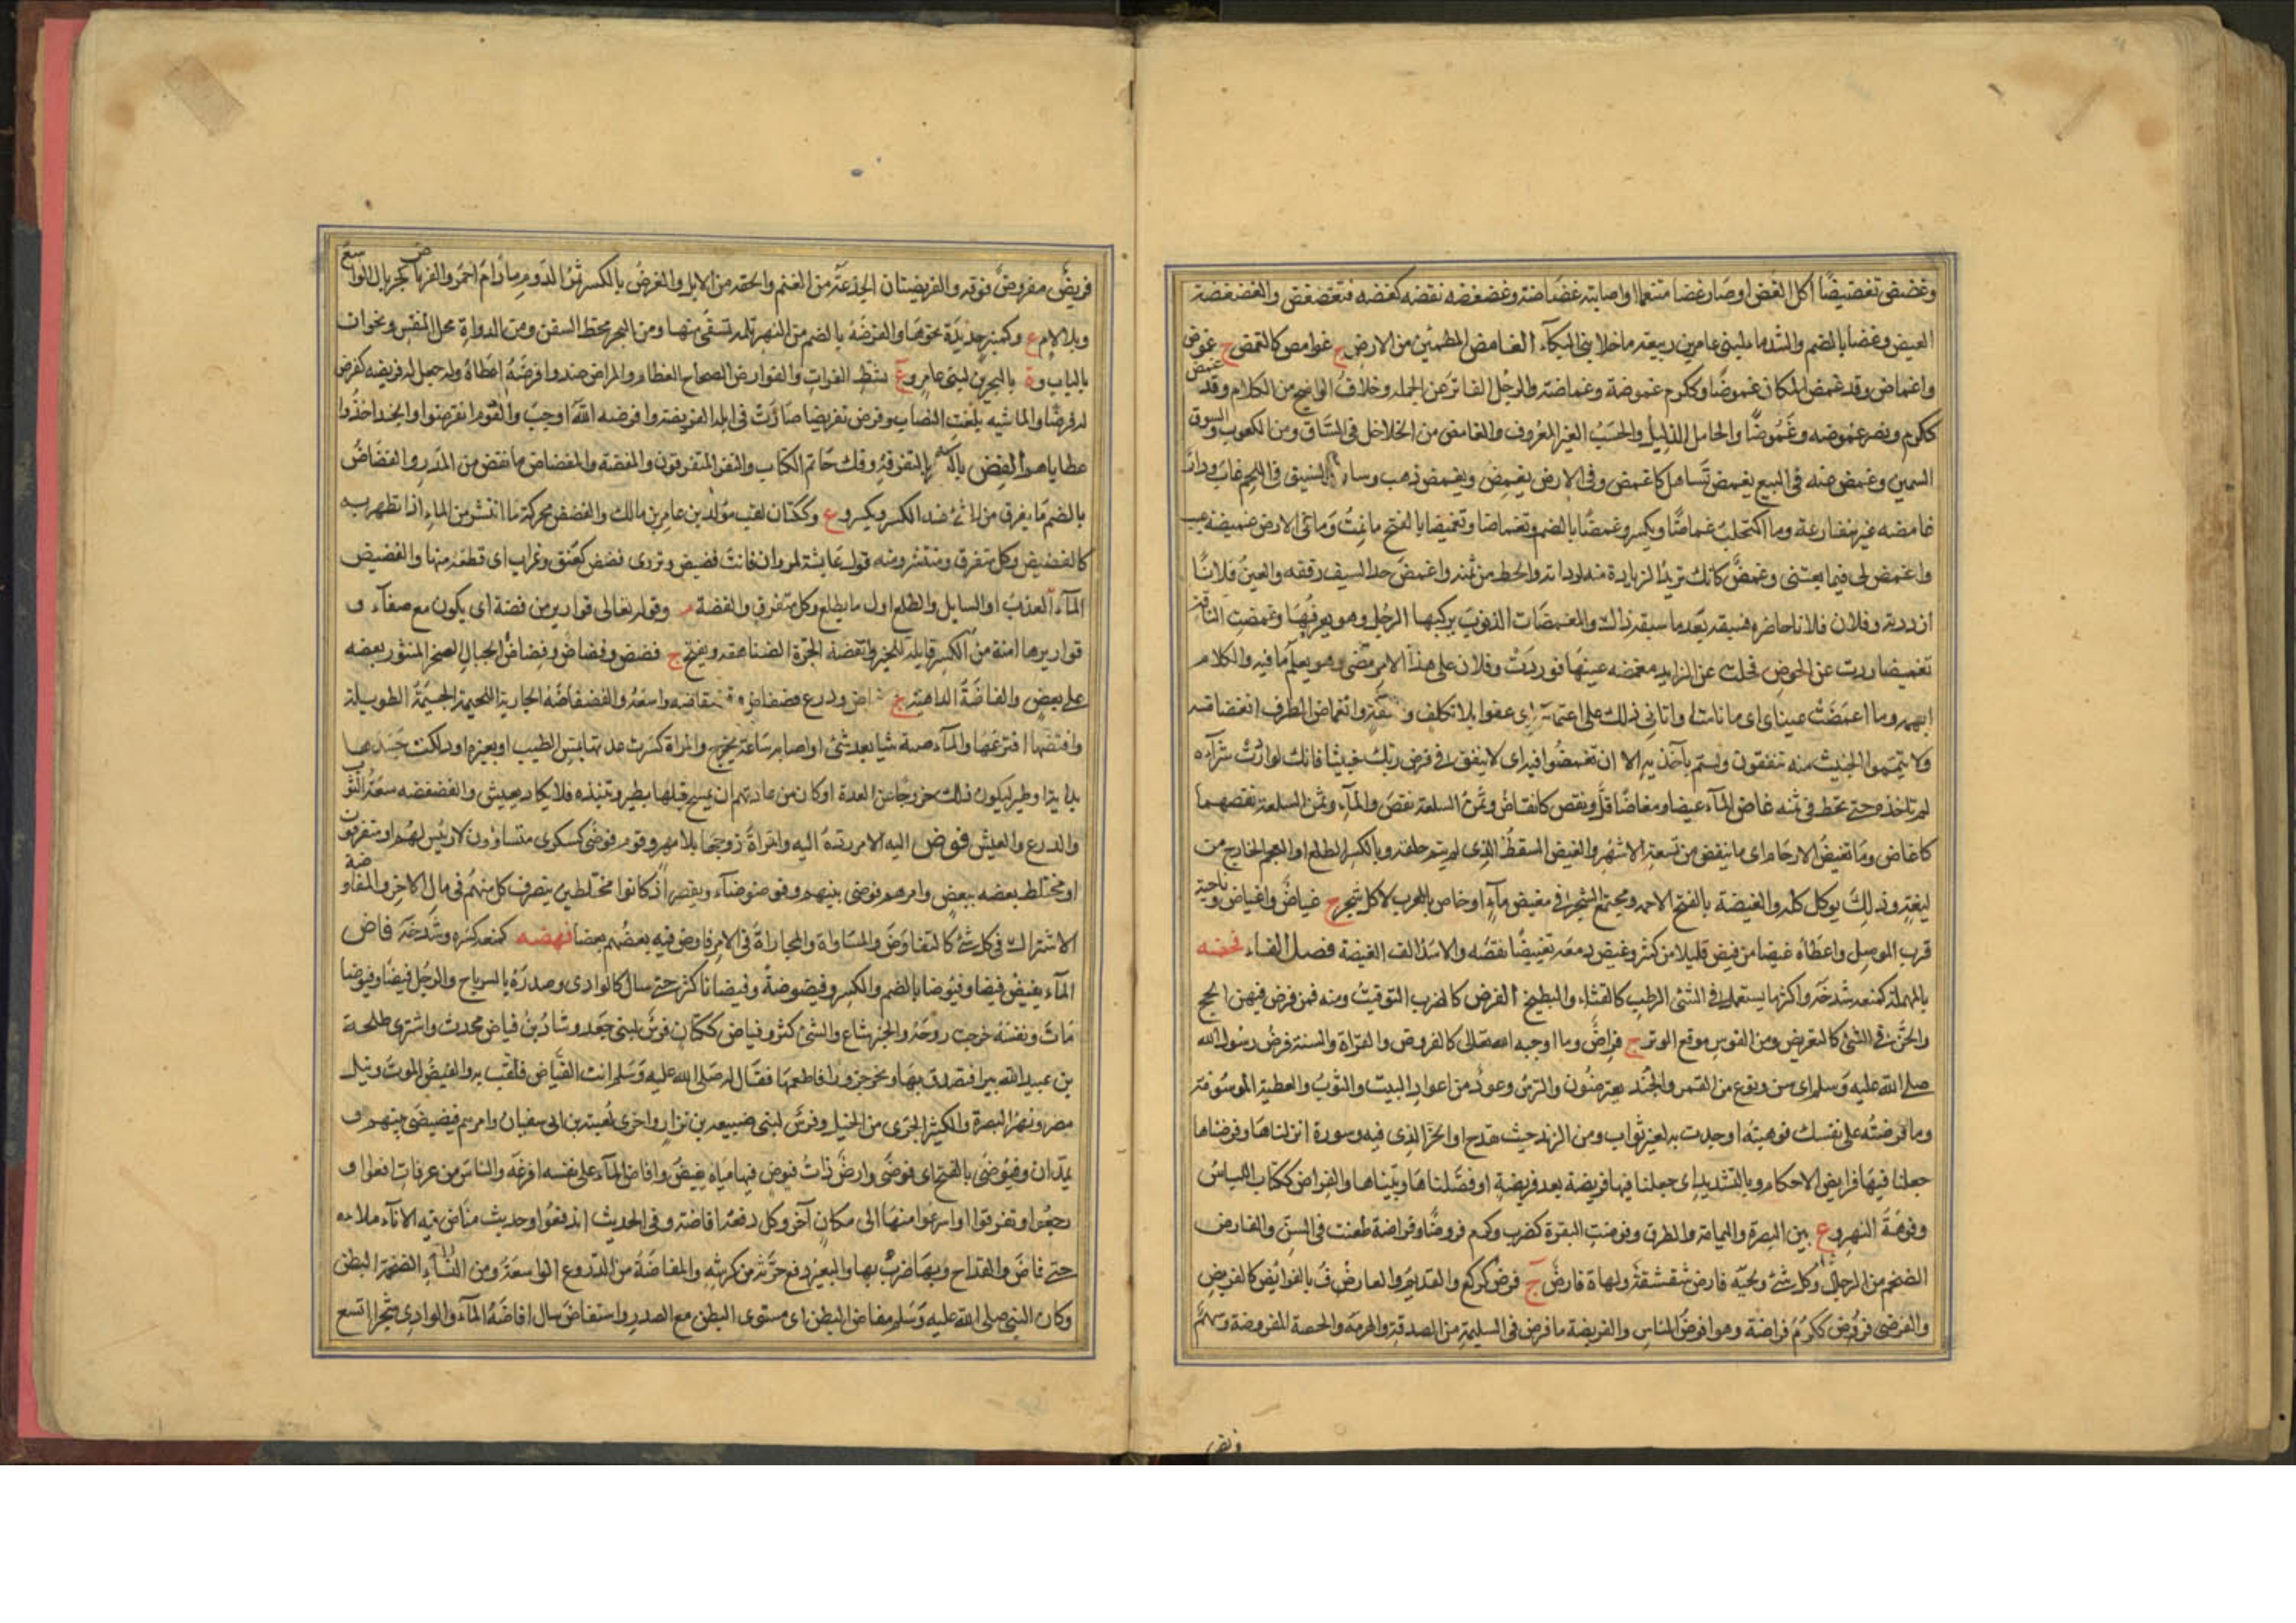 وغضض تغضيضًا اكل الغض او صار غضا متنعما او اصابته غضاضة وغضغضه نقصه كغضه فتغضغض والغضغضة
الغيض وغضا بالضم والشد ماء لبنى عامر بن ربيعة ما خلا بنى البكآء الغامض المطمئن من الارض ج غوامض كالغمض ج غموض
واغماض وقد غمض المكان غموضًا وككرم غموضة وغماضة والرجل الفاتر عن الحملة وخلاف الواضح من الكلام وقد غمض
ككرم ونصر غموضه وغموضًا والخامل الذليل والحسب الغير المعروف والغامض من الخلاخل فى الساق ومن الكعوب والسوق
السمين وغمض عنه فى البيع يغمض تساهل كاغمض وفى الارض يغمض ويغمض ذهب وسار والسيف فى اللحم غاب ودار
غامضه غير شارعة وما اكتحلت غماضًا ويكسر وغمضًا بالضم وتغماضا وتغميضا بالفتح ما نمت وما فى الارض غميضة عيب
واغمض لى فيما بعتنى وغمض كانك تريد الزيادة منه لرداءته والحط من ثمنه واغمض حد السيف رققه والعين فلانًا
ازدرته وفلان فلانا حاضره فسبقه بعد ما سبقه ذلك والمغمضات الذنوب يركبها الرجل وهو يعرفها وغمضت الناقة
تغميضا ردت عن الحوض فحملت على الزايد مغمضه عينها فوردت وفلان على هذا الامر مضى وهو يعلم ما فيه والكلام
ابهمه وما اغمضت عيناى اى ما نامتا واتانى ذلك على اغتماض اى عفوا بلا تكلف و واغماض الطرف انغضاضه
ولا تيمموا الخبيث منه تنفقون ولستم بآخذيه الا ان تغمضوا فيه اى لا ينفق فى قرض ربك خبيثا فانك لو اردت شرآءه
لم تاخذه حتى تحط فى ثمنه غاض المآء غيضا ومغاضًا قل ونقص كانغاض وثمن السلعة نقص والمآء وثمن السلعة نقصهما
كاغاض وما تغيض الارحام اى ما ينقص من تسعة الاشهر والغيض السقط الذى لم يتم خلقه وبالكسر الطلع او العجم الخارج من
ليفه وذلك يوكل كله والغيضة بالفتح الاجمه ومجتمع الشجر فى مغيض مآء او خاص بالغرب لا كل شجر ج غياض واغياض وناحية
قرب الموصل واعطاه غيضا من فيض قليلا من كثير وغيض دمعه تغييضًا نقصه والاسد الف الغيضة فصل الفاء فحضه
بالمهملة كمنعه شدخه واكثر ما يستعمل فى الشئ الرطب كالقثاء والبطيخ الفرض كالضرب التوقيت ومنه فمن فرض فيهن الحج
والحز فى الشئ كالتفريض ومن القوس موقع الوتر ج فراض وما اوجبه الله تعالى كالفروض والقراة والسنة فرض رسول الله
صلى الله عليه وسلم اى سن ونوع من التمر والجند يفترضون والترس وعود من اعواد البيت والثوب والعطية الموسومة
وما فرضته على نفسك فوهبته او جدت به لغير ثواب ومن الزند حيث يقدح او الحز الذى فيه وسورة انزلناها وفرضناها
جعلنا فيها فرايض الاحكام وبالتشديد اى جعلنا فيها فريضة بعد فريضة او فصلناها وبيناها والفراض ككتاب اللباس
وفوهة النهر وع بين البصرة واليمامة والطرق وفرضت البقرة كضرب وكرم فروضًا وفراضة طعنت فى السن والفارض
الضخم من الرجال وكل شئ ولحية فارض شقشقة ولهاة فارض ج فرض كركع والقديم والعارف بالفرائض كالفريض
والفرضى فرض ككرم فراضة وهو افرض الناس والفريضة ما فرض فى السليمة من الصدقة والهرمة والحصة المفروضة وسهم
وتض
فريض مفروض فوقه والفريضتان الجذعة من الغنم والحقة من الابل والفرض بالكسر ثمر الدوم ما دام احمر والفرياض كجريال الواسع
وبلا لام ع وكمنبر حديدة يحز بها والفرضة بالضم من النهر ثلمة تستقى منها ومن البحر محط السفن ومن الدواة محل النقس ونجران
بالباب وة بالبحرين لبنى عامر وع بشط الفرات والفوارض الصحاح العظام والمراض ضد وافرضه اعطاه وله جعل له فريضة كفرض
له فرضًا والماشيه بلغت النصاب وفرض تفريضا صارت فى ابله الفريضة وافترضه الله اوجب والقوم انقرضوا والجند اخذوا
عطاياهم الفض بالكسر بالتفرقة وفك خاتم الكتاب والنفر المتفرقون والمفضة والمفضاض ما تفض من المدر والفضاض
بالضم ما يفرق من الشئ عند الكسر ويكسر وع وككتان لقب موألة بن عامر بن مالك والفضض محركة ما انتشر من الماء اذا تطهر به
كالفضيض وكل متفرق ومنتشر ومنه قول عايشة لمروان فانت فضيض وتروى فضض كعنق وغراب اى قطعة منها والفضيض
المآء العذب او السايل والطلع اول ما يطلع وكل متفرق والفضة م وقوله تعالى قوارير من فضة اى يكون مع صفآء
قواريرها امنة من الكسر قابلة للجبر والفضة الحرة الضناهقه ويفتح ج فضض وفضاض وفضاض الجبال الصخر المنثور بعضه
على بعض والفاضة الداهية ج فواض ودرع فضفاض وفضفاضه واسعة والفضفاضة الجارية اللحيمة الجسيمة الطويلة
وافتضها افترعها والمآء صبه شيا بعد شئ او اصابه ساعة يخرج والمراة كسرت عدتها بمس الطيب او بغيره او دلكت جسدها
بدابة او طير ليكون ذلك خروجا عن العدة او كان من عادتهم ان تمسح قبلها بطير وتنبذه فلا يكاد يعيش والفضفضه سعة الثوب
والدرع والعيش فوض اليه الامر رده اليه والمراة زوجها بلا مهر وقوم فوضى كسكرى متساوون لا رئيس لهم او متفرقون
او مختلط بعضه ببعض وامرهم فوضى بينهم وفوضوضآء ويقصر اذ كانوا مختلطين يتصرف كل منهم فى مال الاخر والمفاوضة
الاشتراك فى كل شئ كالتفاوض والمساواة والمجاراة فى الامر فاوض فيه بعضهم بعضا فهضه كمنعه كسره وشدخه فاض
المآء يفيض فيضا وفيوضا بالضم والكسر وفيضوضة وفيضانا كثر حتى سال كالوادى وصدره بالسر باح والرجل فيضًا وفيوضا
مات ونفسه خرجت روحه والخبر شاع والشئ كثر وفياض ككتان فرس لبنى جعد وشاذ بن فياض محدث واشترى طلحة
بن عبيد الله بيرا فتصدق بها ونحر جزورا فاطعمها فقال له صلى الله عليه وسلم انت الفياض فلقب به والفيض الموت ونيل
مصر ونهر البصرة والكثير الجرى من الخيل وفرس لبنى ضبيعه بن نزار واخرى لعتبة بن ابى سفيان وامرهم فيضيضى بينهم
يمدان وفيوضى بالفتح اى فوضى وارض ذات فيوض فيها مياه تفيض وافاض المآء على نفسه افرغه والناس من عرفات دفعوا او
رجعوا وتفرقوا او اسرعوا منها الى مكان آخر وكل دفعة افاضة وفى الحديث اندفعوا وحديث مفاض فيه الانآء ملاءه
حتى فاض والقداح وبها ضرب بها والبعير دفع جرته من كرشه والمفاضة من الدروع الواسعة ومن النسآء الضخمة البطن
وكان النبى صلى الله عليه وسلم مفاض البطن اى مستوى البطن مع الصدر واستفاض سال افاضة المآء والوادى شجرا اتسع